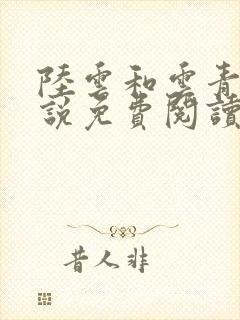 陸雲和雲青
說免費閱讀
昔人非